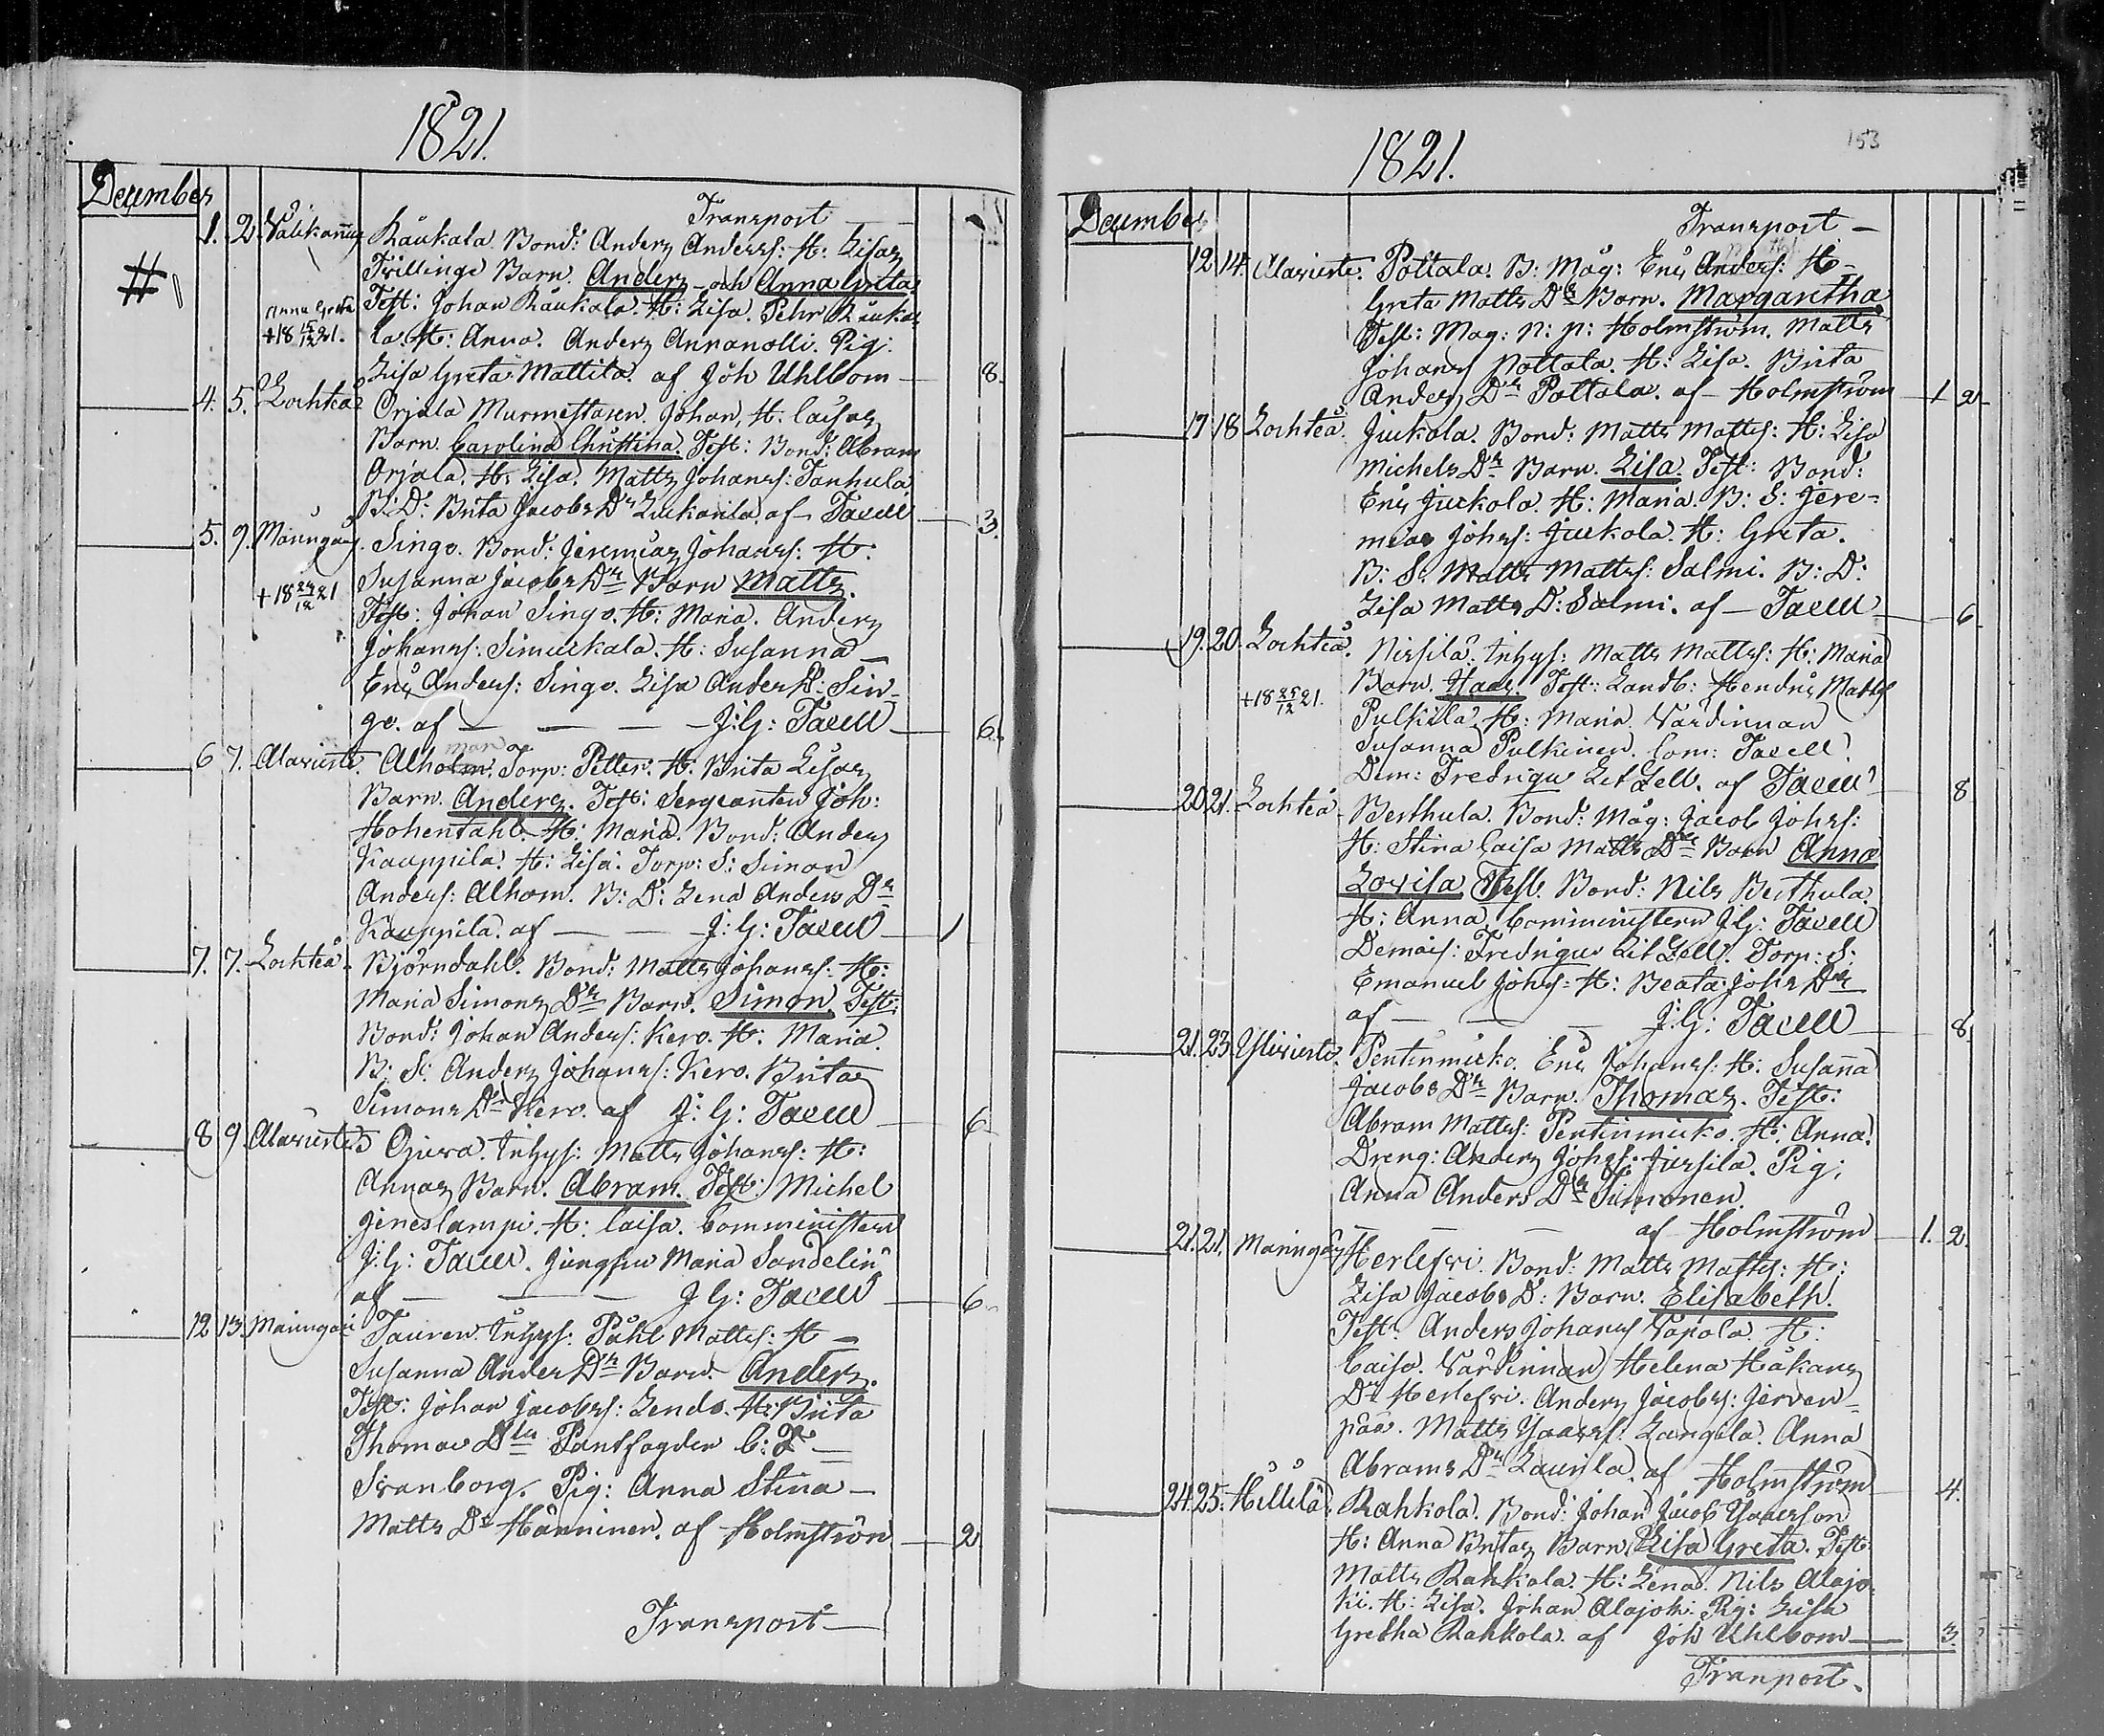 1821.
December
Transport
1. 2. Välikannus Räukala. Bond: Anders Anderss: H: Lisas
Tvillinge Barn. Anders och Anna Greta
Anna Greta Test: Johan Räukala. H: Lisa. Pehr Räuka-
+18 15/12 21. la. H: Anna. Anders Annanolli. Pig:
Lisa Greta Mattila. af Joh Uhlbom 8.
4. 5. Lochteå Orjala Murmestaren Johan, H: Caisas
Barn. Carolina Christina. Test: Bond: Abram
Orjala. H: Lisa. Matts Johanss: Tanhula
B: D: Brita Jacobs Dr Luckarila af Tacell 3.
5. 9. Mariugås. Singo. Bond: Jeremias Johanss: H:
Susanna Jacobs Dr Barn Matts.
+18 24/12 21 Test: Johan Singo. H: Maria. Anders
Johanss: Simuckala. H: Susanna
Eric Anderss: Singo. Lisa Anders D: Sin-
go. af J: G: Tacell 6.
6 7. Alavieste. Alholm man Torp: Petter. H: Brita Lisas
Barn. Anders. Test: Sergeanten Joh:
Hohenthahl H: Maria. Bond: Anders
Kauppila. H: Lisa. Torp: S: Simon
Anderss: Alhom. B: D: Lena Anders Dr
Kauppila. af J: G: Tacell 1
7. 7. Lochteå. Björndahl. Bond: Matts Johanss: H:
Maria Simons Dr Barn. Simon. Test:
Bond: Johan Anderss: Kero. H: Maria.
B: S: Anders Johanss: Kero. Brita
Simons Dr Kero. af J: G: Tacell 6
8 9. Alavieste Ojuva. Inhys: Matts Johanss: H:
Annas Barn. Abram. Test: Michel
Jeneslampi. H: Caisa. Comministern
J: G: Tacell. Jungfru Maria Sandelin
af J G: Tacell 6.
12 13. Mariugås Tauren. Inhys: Påhl Mattss: H
Susanna Anders Dr Barn. Anders.
Test: Johan Jacobss: Lende. H: Brita
Thomas Dtr Pantfogden C: F
Svanborg. Pig: Anna Stina
Matts Dr Hänninen. af Holmström 2
Transport
1821. 153
December
Transport
12 14. Alavieste. Pottala. B: Måg: Eric Anderss: H
Greta Matts Dr Barn. Margaretha
Test: Mag: N: N: Holmström. Matts
Johanss Pottala. H: Lisa. Brita
Anders Dr Pottala. af Holmström 1 2
17 18 Lochteå. Juckola. Bond: Matts Mattss: H: Lisa
Michels Dr Barn. Lisa. Test: Bond:
Eric Juckola. H: Maria. B: S: Jere-
mias Johss: Juckola. H: Greta.
B: S: Matts Mattss: Salmi. B: D:
Lisa Matts D: Salmi. af Tacell 6
19. 20. Lochteå. Nirsilä. Inhys: Matts Mattss: H: Maria
+18 25/12 21. Barn. Isaac. Test: Landb: Hendric Mattss
Pulkila. H: Maria. Värdinnan
Susanna Pulkinen. Com: Tacell.
Dem: Fredrique Lit Zell. af Tacell 8
20 21. Lochteå Berthula. Bond: Måg: Jacob Johss:
H: Stina Caisa Matts Dr Barn Anna
Lovisa Test. Bond: Nils Berthula.
H: Anna. Comministern J G: Tacell
Demois: Fredrique Lit Zell. Torp: S:
Emanuel Johss: H: Beata Johs Dr
af J: G: Tacell 8
21. 23. Ylivieste. Pentinmicko. Eric Johanss: H: Susanna
Jacobs Dr Barn. Thomas. Test:
Abram Mattss: Pentinmicko. H: Anna.
Dreng: Anders Johss: Jussila. Pig:
Anna Anders Dr Timonen.
af Holmström 1. 2.
21. 21. Mariugås Herlefvi. Bond: Matts Mattss: H:
Lisa Jacobs D: Barn. Elisabeth.
Test: Anders Johanss Vapola. H:
Caisa. Värdinnan Helena Håkans
Dr Herlefvi. Anders Jacobss: Jerven-
pää. Matts Isaacss: Langila. Anna
Abrams Dr Laurila. af Holmström 4.
24. 25. Hillilä. Rahkola. Bond: Johan Jacob Isaacson
H: Anna Britas Barn, Lisa Greta. Test
Matts Rahkola. H: Lena. Nils Alajo-
ki. H: Lisa. Johan Alajoki. Pig: Lisa
Gretha Rahkola. af Joh Uhlbom 3
Tranport.